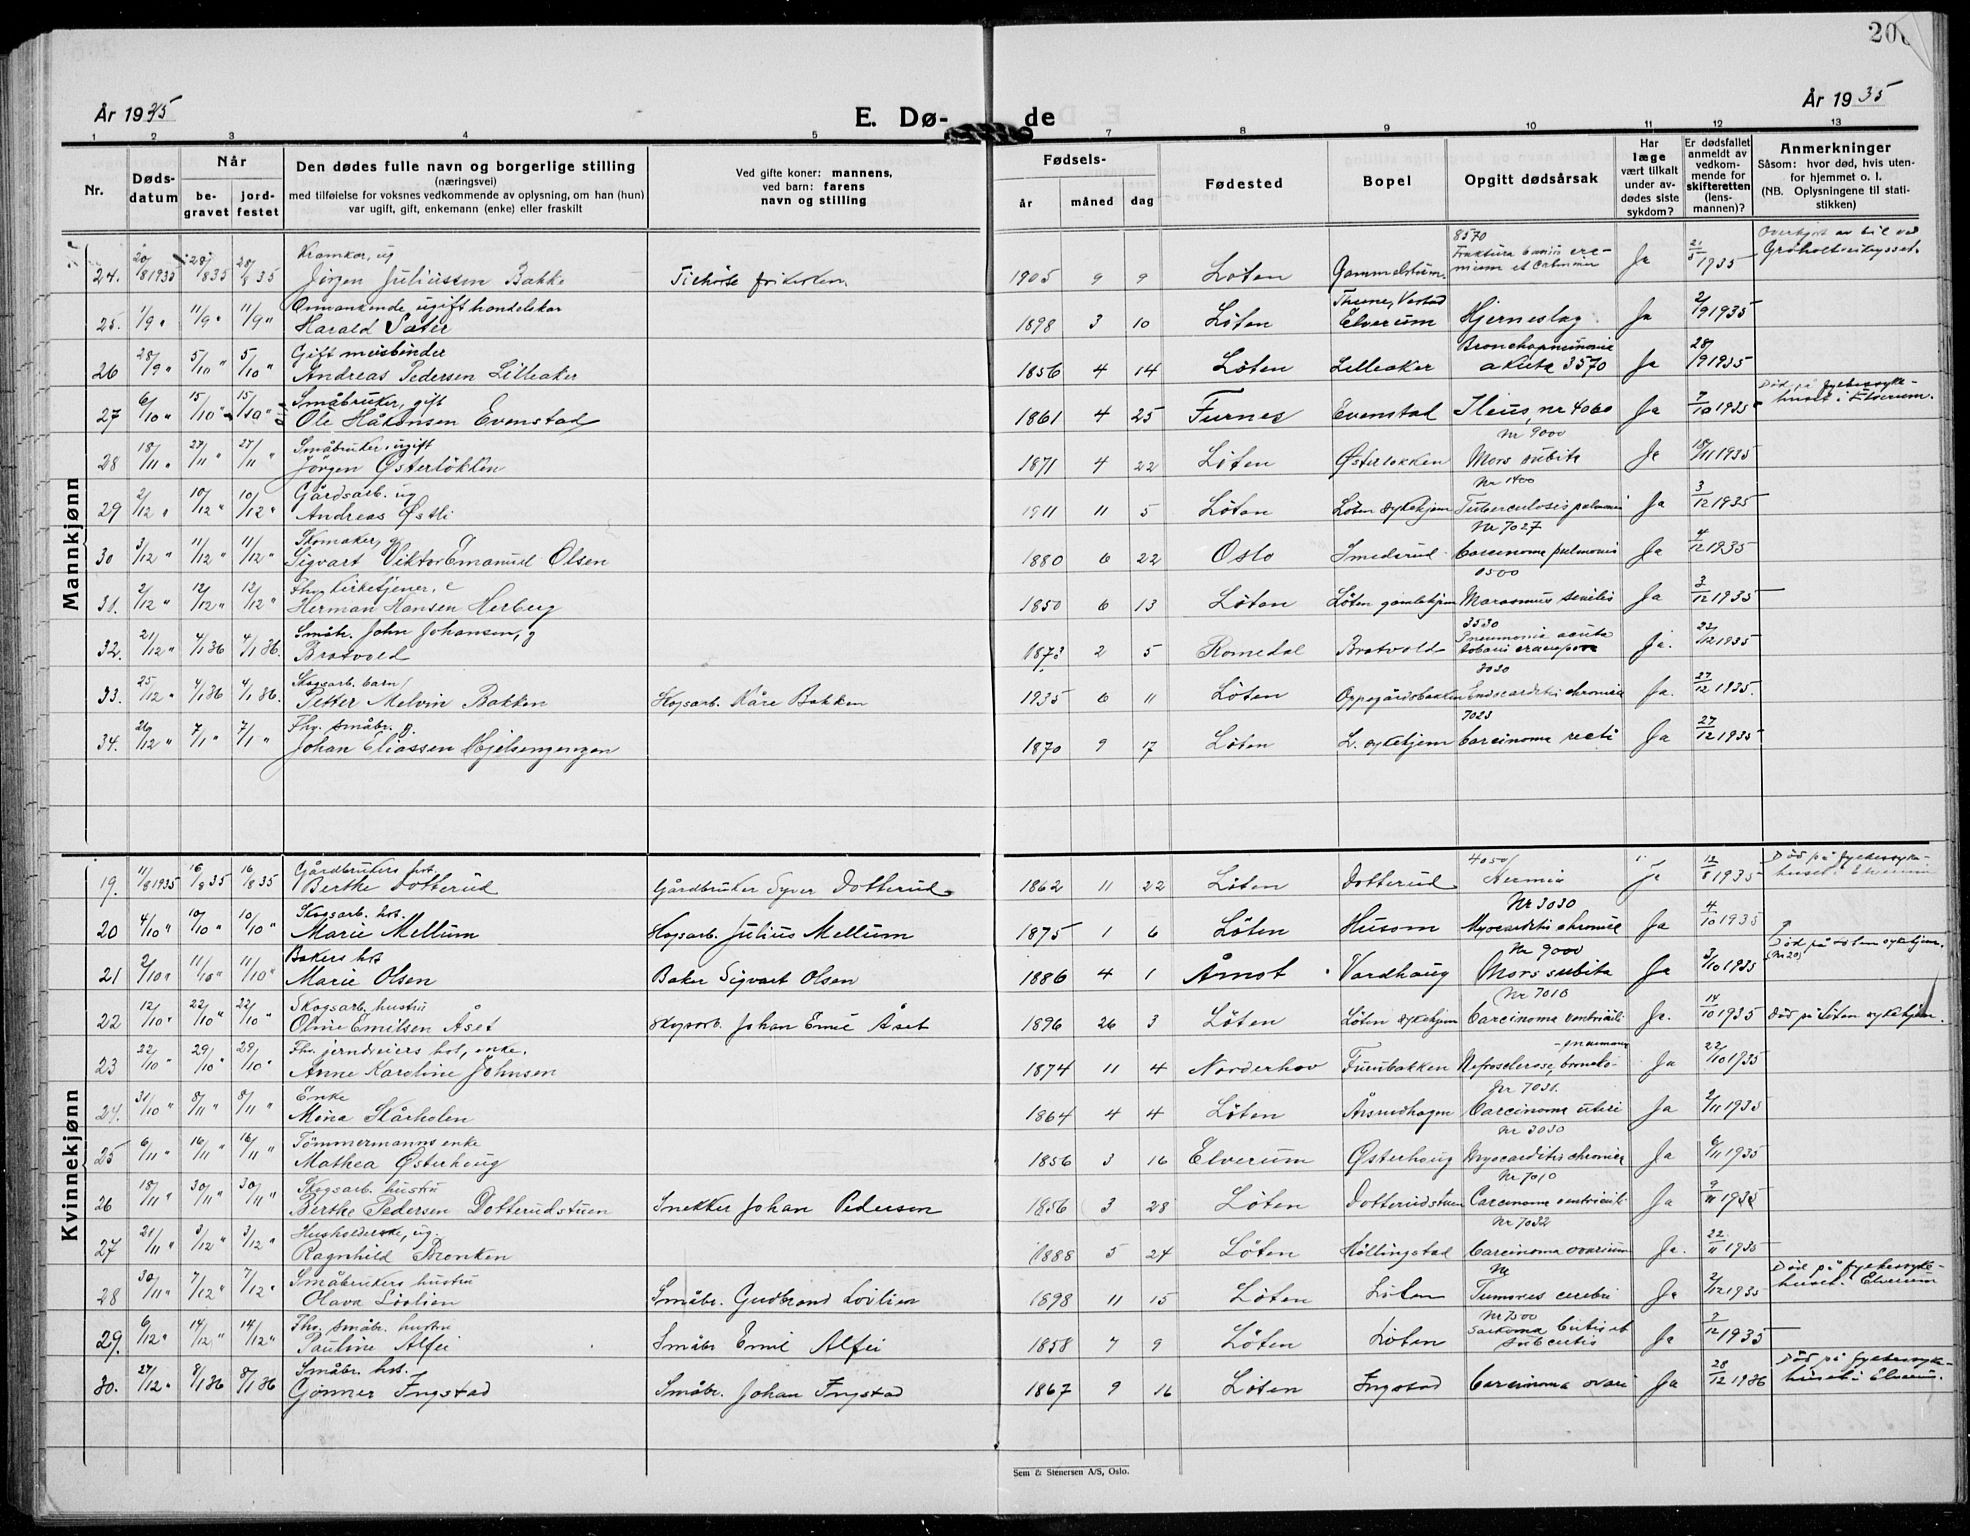 200
År 1935
E. Dø-
de
År 1935
1 2 3 4 5 7 8 9 10 11 12 13
Nr.
Døds-
datum
Når
be-
gravet
jord-
festet
Den dødes fulle navn og borgerlige stilling
(næringsvei)
med tilføielse for voksnes vedkommende av oplysning, om han (hun)
var ugift, gift, enkemann (enke) eller fraskilt
Ved gifte koner: mannens,
ved barn: farens
navn og stilling
Fødsels-
år måned dag
Fødested
Bopel
Opgitt dødsårsak
Har
læge
vært tilkalt
under av-
dødes siste
sykdom?
Er dødsfallet
anmeldt av
vedkom-
mende for
skifteretten
(lens-
mannen)?
Anmerkninger
Såsom: hvor død, hvis uten-
for hjemmet o. l.
(NB. Oplysningene til stati-
stikken)
Mannkjønn
Kramkar, ug 8570 Overkjørt av bil ved
24. 20/8 1935 28/8 35 28/8 35 Jörgen Juliussen Bakke 1905 9 9 Löten Ja 1935
Omvankende ugift handelskar
25. 1/9 " 11/9 " 11/9 " Harald Sæter 1898 3 10 Löten Elverum Hjerneslag Ja 2/9 1935
Gift meisbinder Bronchopneumonia
26 28/9 " 5/10 " 5/10 " Andreas Pedersen Lilleaker 1856 4 14 Löten Lilleaker akuta 3570 Ja 28/9 1935
Småbruker, gift Död på fylkessyke-
27 6/10 " 15/10 " 15/10 " Ole Håkonsen Evenstad 1861 4 25 Furnes Evenstad Ileus, nr 4060 Ja 7/10 1935 huset i Elverum.
Småbruker, ugift Nr 9000
28 18/11 " 27/11 " 27/11 " Jörgen Österlökken 1871 4 22 Löten Österlökken Mors subita Ja 18/11 1935
Gårdsarb. ug Nr 1400
29 2/12 " 10/12 " 10/12 " Andreas Östli 1911 11 5 Löten Löten sykehjem Tuberculosis pulmonis Ja 3/12 1935
Skomaker, g Nr 7027
30 3/12 " 11/12 " 11/12 " Sigvart Viktor Emanuel Olsen 1880 6 22 Oslo Smedsrud Carcinoma pulmonis Ja 4/12 1935
Fhv. kirketjener, e 0500
31. 2/12 " 12/12 " 12/12 " Herman Hansen Herberg 1850 6 13 Löten Löten gamlehjem Marasmus senilis Ja 3/12 1935
Småbr. John Johansen, g 3530
32. 21/12 " 4/1 36 4/1 36. Bratvold 1873 2 5 Romedal Bratvold Pneumonia acuta Ja. 1935
Skogsarb. barn 3030
33. 25/12 " 4/1 36 4/1 36. Petter Melvin Bakken Skogsarb. Kåre Bakken 1935 6 11 Löten Oppegårdsbakken Endocarditis chronica Ja. 27/12 1935.
Fhv. småbr. g. 7023
34. 26/12 " 7/1 " 7/1 " Johan Eliassen Hjelsengengen 1870 9 17 Löten L. sykehjem Carcinoma recti Ja 27/12 1935
Kvinnekjønn
Gårdbrukers hst. 4050 Död på fylkessyke-
19. 11/8 1935 16/8 35 16/8 35 Berthe Dotterud Gårdbruker Syver Dotterud 1862 11 22 Löten Dotterud Hernia Ja 12/8 1935 huset i Elverum
Skogsarb. hst. Nr 3030
20 4/10 " 10/10 " 10/10 " Marie Mellum Skogsarb. Julius Mellum 1875 1 6 Löten Husom Myocarditis chronica Ja 4/10 1935
Bakers hst Nr 9000 Död på Löten sykehjem.
21 2/10 " 11/10 " 11/10 " Marie Olsen Baker Sigvart Olsen 1886 4 1 Åmot Vardhaug Mors subita Ja 3/10 1935 (Nr 20)
Skogsarb. hustru Nr 7010
22 12/10 " 22/10 " 22/10 " Oline Emilsen Åset Skogsarb. Johan Emil Åset 1896 26 3 Löten Löten sykehjem Carcinoma ventriculi Ja. 14/10 1935 Död på Löten sykehjem.
Fhv. jerndreiers hst, enke.
23 22/10 " 29/10 " 29/10 " Anne Karoline Johnsen 1874 11 4 Norderhov Furubakken Nefrosclerose, Ja 22/10 1935
Enke Nr 7031.
24. 31/10 " 8/11 " 8/11 " Mina Skårholen 1864 4 4 Löten Årsrudhagen Carcinoma uteri Ja 2/11 1935
Tömmermanns enke Nr 3030
25 6/11 " 16/11 " 16/11 " Mathea Österhaug 1856 3 16 Elverum Österhaug Myocarditis chronica Ja 6/11 1935
Skogsarb. hustru Nr 7010
26 18/11 " 30/11 " 30/11 " Berthe Pedersen Dotterudstuen Snekker Johan Pedersen 1856 3 28 Löten Dotterudstuen Carcinoma ventriculi Ja 9/11 1935
Husholderske, ug. Nr 7032
27 21/11 " 3/12 " 3/12 " Ragnhild Brenken 1888 5 24 Löten Höllingstad Carcinoma ovarium Ja. 22/11 1935
Småbrukers hustru Nr Död på fylkessyke-
28 30/11 " 7/12 " 7/12 " Olava Lövlien Småbr. Gudbrand Lövlien 1898 11 15 Löten Löten Tumores cerebri Ja 2/12 1935 huset i Elverum
Fhv. småbr. hustru Nr 7500
29. 6/12 " 14/12 " 14/12 " Pauline Alfei Småbr Emil Alfei 1858 7 9 Löten Löten Sarkoma cutis et subcutis Ja 7/12 1935
Småbr. hst. Död på fylkessyke-
30. 27/12 " 8/1 36 8/1 36 Gönner Ingstad Småbr. Johan Ingstad 1867 9 16 Löten Ingstad Carcinoma ovari Ja 28/12 1936 huset i Elverum.
Sem & Stenersen A/S, Oslo.